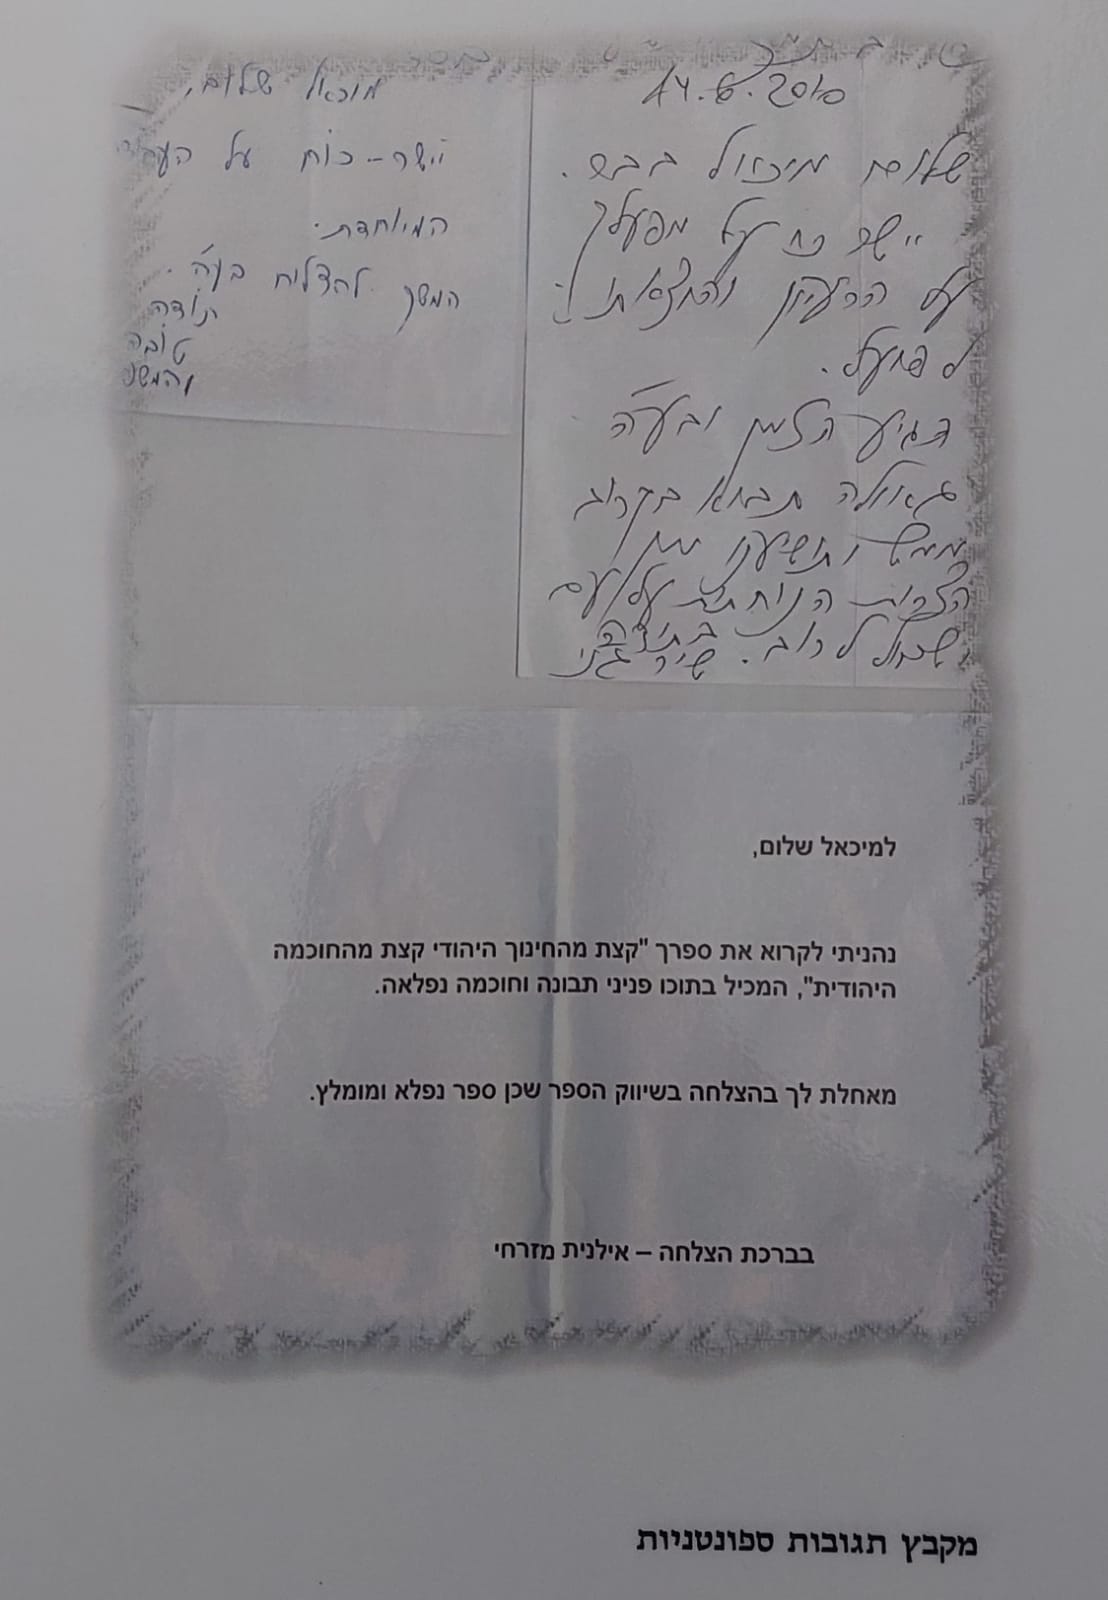 14.6.2010
שלום מיכאל
יישר כח על מפעלך
על הרעיון והוצאתו
לפועל.
הגיע הזמן ובע"ה
גאולה תבוא בקרוב
ממש ותושיענו מן
הצרות הנוחתות על עם
ישראל לרוב. בתודה
שיר
מיכאל שלום,
יישר-כוח על
המיוחדת.
המשך להצליח בע"ה.
תודה
טובה
למיכאל שלום,
נהניתי לקרוא את ספרך "קצת מהחינוך היהודי קצת מהחוכמה
היהודית", המכיל בתוכו פניני תבונה וחוכמה נפלאה.
מאחלת לך בהצלחה בשיווק הספר שכן ספר נפלא ומומלץ.
בברכת הצלחה – אילנית מזרחי
מקבץ תגובות ספונטניות